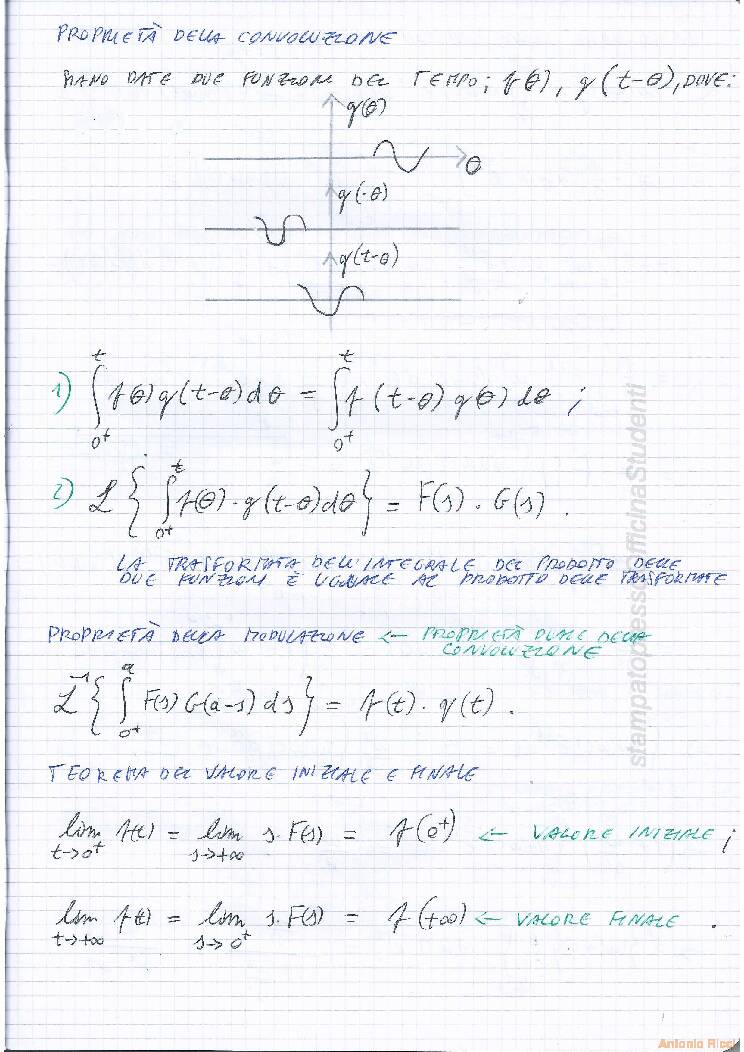 PROPRIETÀ DELLA CONVOLUZIONE
SIANO DATE DUE FUNZIONI DEL TEMPO; f(θ), g(t-θ), DOVE:
g(θ)
θ
g(-θ)
g(t-θ)
1) ∫_{0⁺}^{t} f(θ) g(t-θ) dθ = ∫_{0⁺}^{t} f(t-θ) g(θ) dθ ;
2) ℒ { ∫_{0⁺}^{t} f(θ) · g(t-θ) dθ } = F(s) · G(s) .
LA TRASFORMATA DELL'INTEGRALE DEL PRODOTTO DELLE
DUE FUNZIONI È UGUALE AL PRODOTTO DELLE TRASFORMATE
PROPRIETÀ DELLA MODULAZIONE ← PROPRIETÀ DUALE DELLA
CONVOLUZIONE
ℒ⁻¹ { ∫_{0⁺}^{a} F(s) G(a-s) ds } = f(t) · g(t) .
TEOREMA DEL VALORE INIZIALE E FINALE
lim_{t→0⁺} f(t) = lim_{s→+∞} s · F(s) = f(0⁺) ← VALORE INIZIALE ;
lim_{t→+∞} f(t) = lim_{s→0⁺} s · F(s) = f(+∞) ← VALORE FINALE .
stampatopressoofficinaStudenti
Antonio Ricci